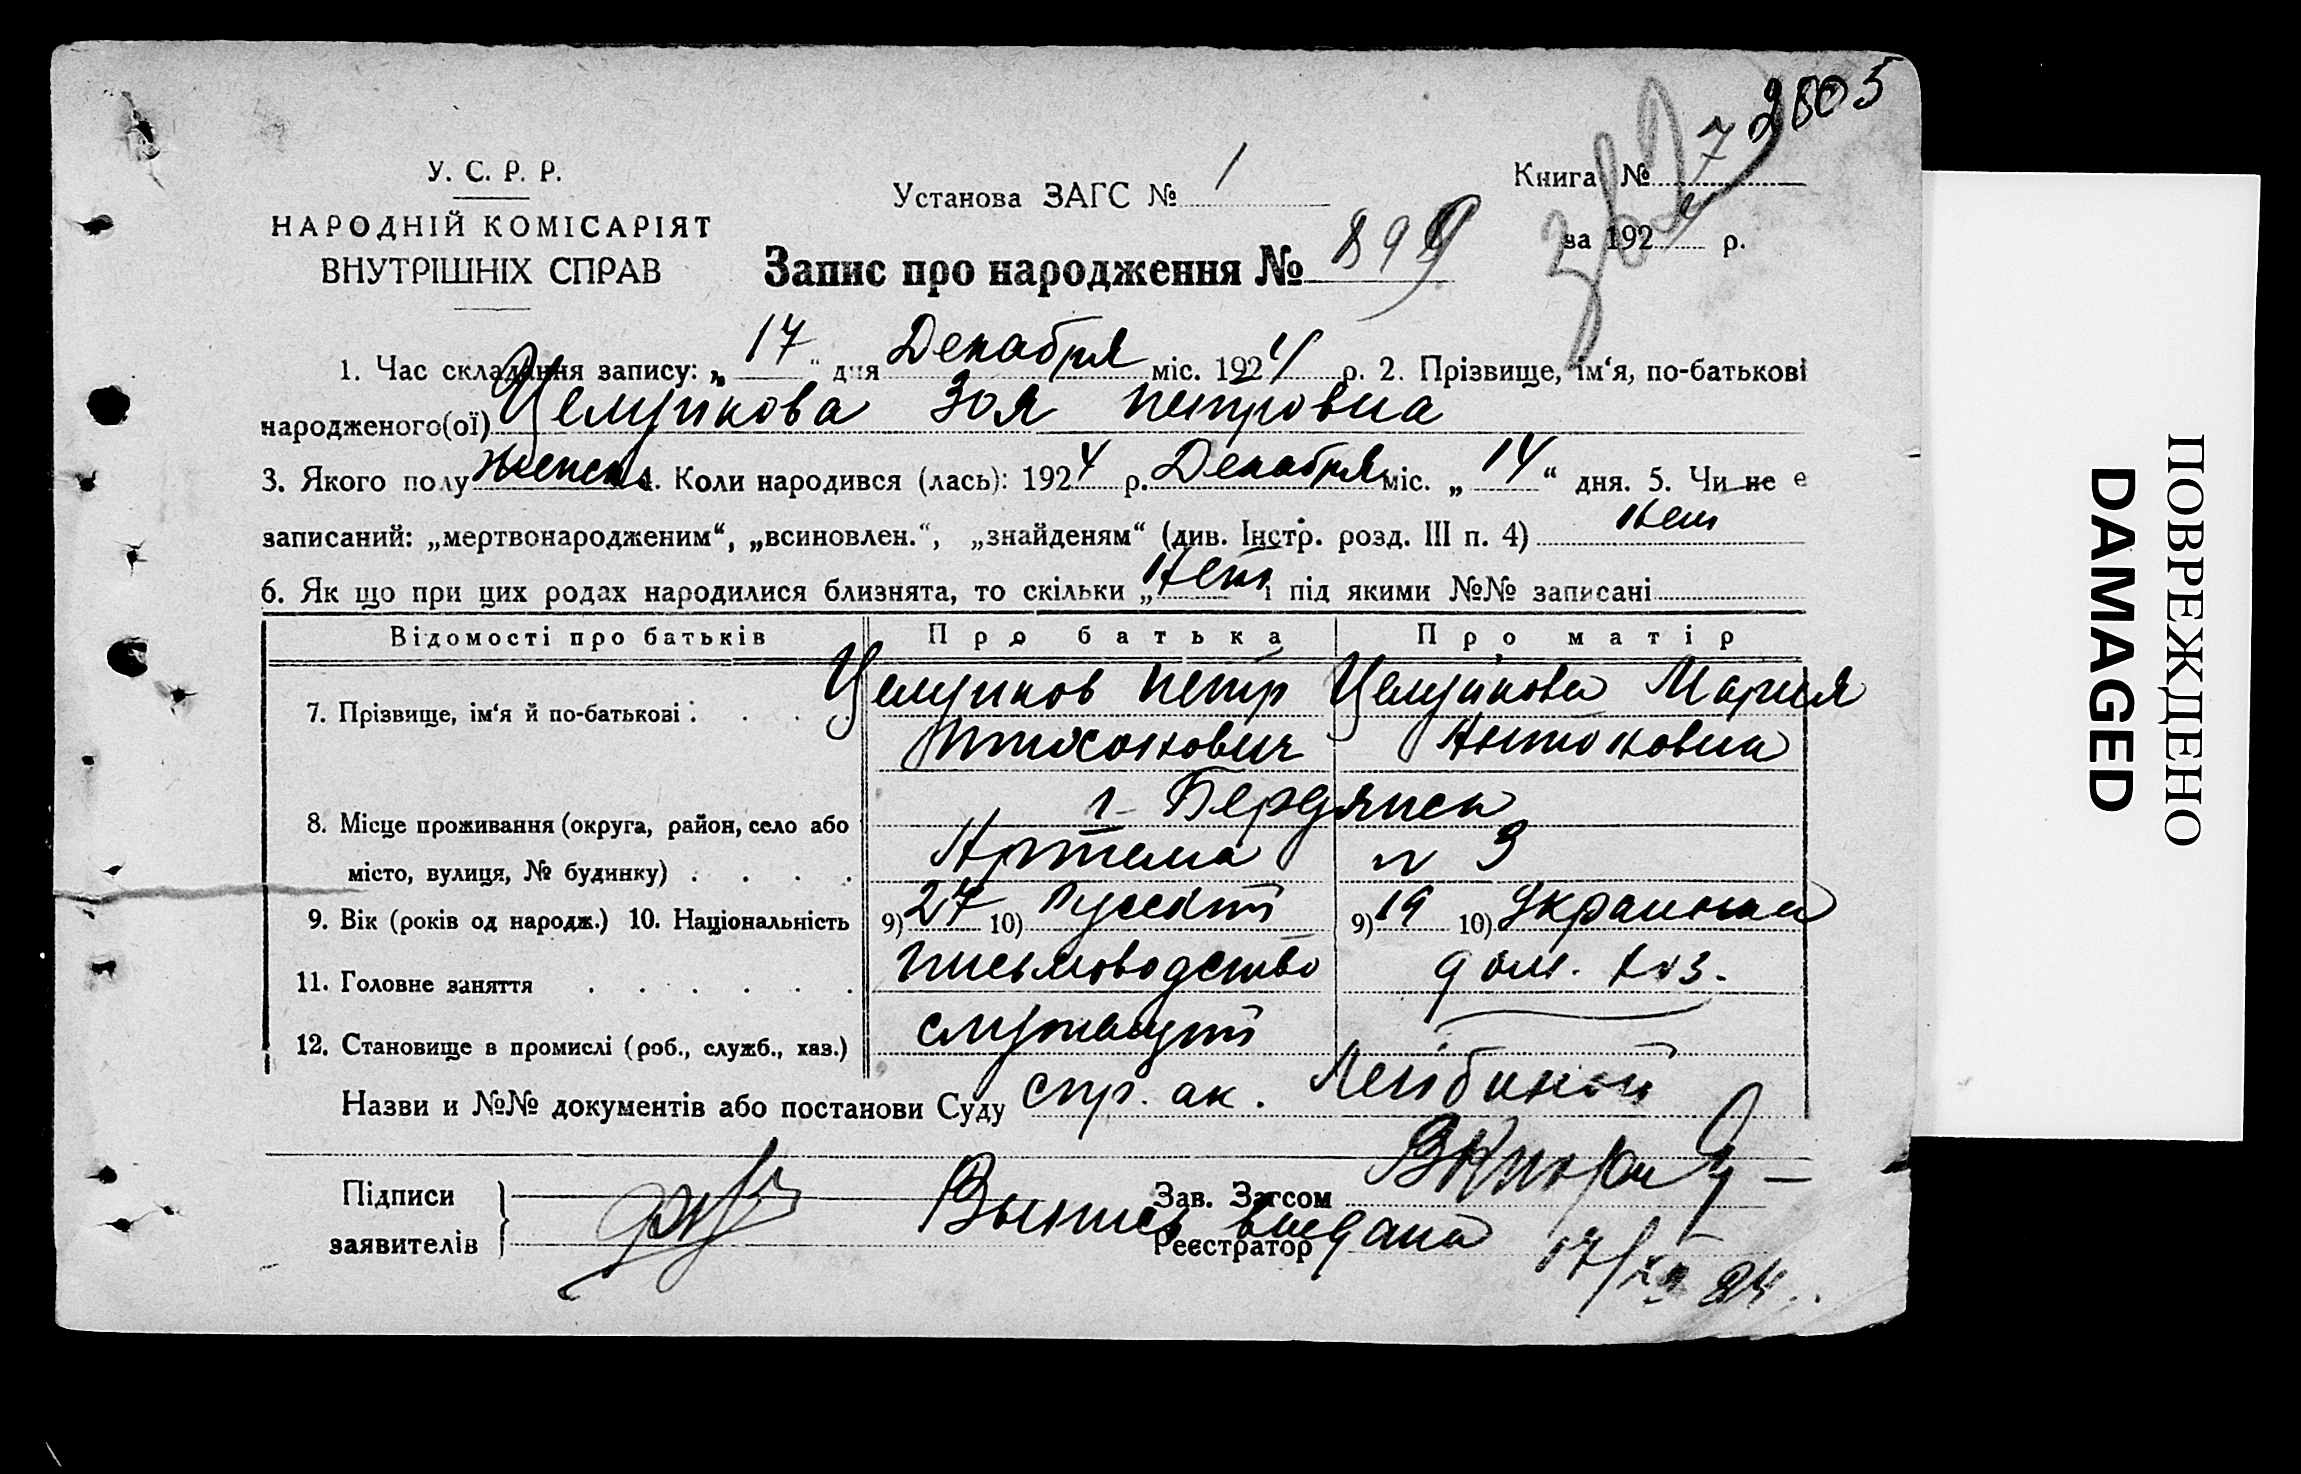 2805
У. С. Р. Р.
НАРОДНІЙ КОМІСАРІЯТ
ВНУТРІШНІХ СПРАВ
Установа ЗАГС № 1
Книга № 7
за 1924 р.
Запис про народження № 899
1. Час складання запису: „17“ дня Декабря міс. 1924 р. 2. Прізвище, ім‘я, по-батькові
народженого(ої) Зоя Петровна
3. Якого полу женск 4. Коли народився (лась): 1924 р. Декабря міс. „14“ дня. 5. Чи не є
записаний: „мертвонародженим“, „всиновлен.“, „знайденям“ (див. Інстр. розд. III п. 4) Нет
6. Як що при цих родах народилися близнята, то скільки „Нет і під якими №№ записані
Відомості про батьків Про батька Про матір
7. Прізвище, ім‘я й по-батькові: Петр Мария
Антоновна
г. Бердянск
8. Місце проживання (округа, район, село або
місто, вулиця, № будинку) Артема № 3
9. Вік (років од народж.) 10. Національність 9) 27 10) Русский 9) 19 10) Украинка
11. Головне заняття письмоводство дом. хоз.
12. Становище в промислі (роб., служб., хаз.) служащий
Назви и №№ документів або постанови Суду спр. ак. Лейбиной
Підписи
заявителів
Зав. Загсом
Выпись выдана
Реєстратор
17/XII 24.
ПОВРЕЖДЕНО
DAMAGED